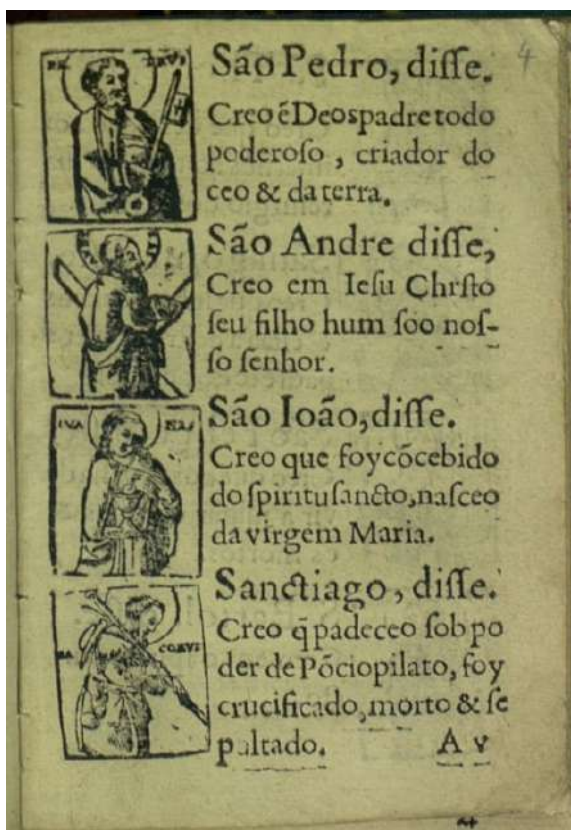 4
PE TRVS
São Pedro, disse.
Creo ẽ Deos padre todo
poderoso, criador do
ceo & da terra.
São Andre disse,
Creo em Iesu Chrsto
seu filho hum soo nos-
so senhor.
IVA NES
São Ioão, disse.
Creo que foy cõcebido
do spiritu sancto, nasceo
da virgem Maria.
Sanctiago, disse.
IA COBVS
Creo q̃ padeceo sob po
der de Põcio pilato, foy
crucificado, morto & se
pultado. A v